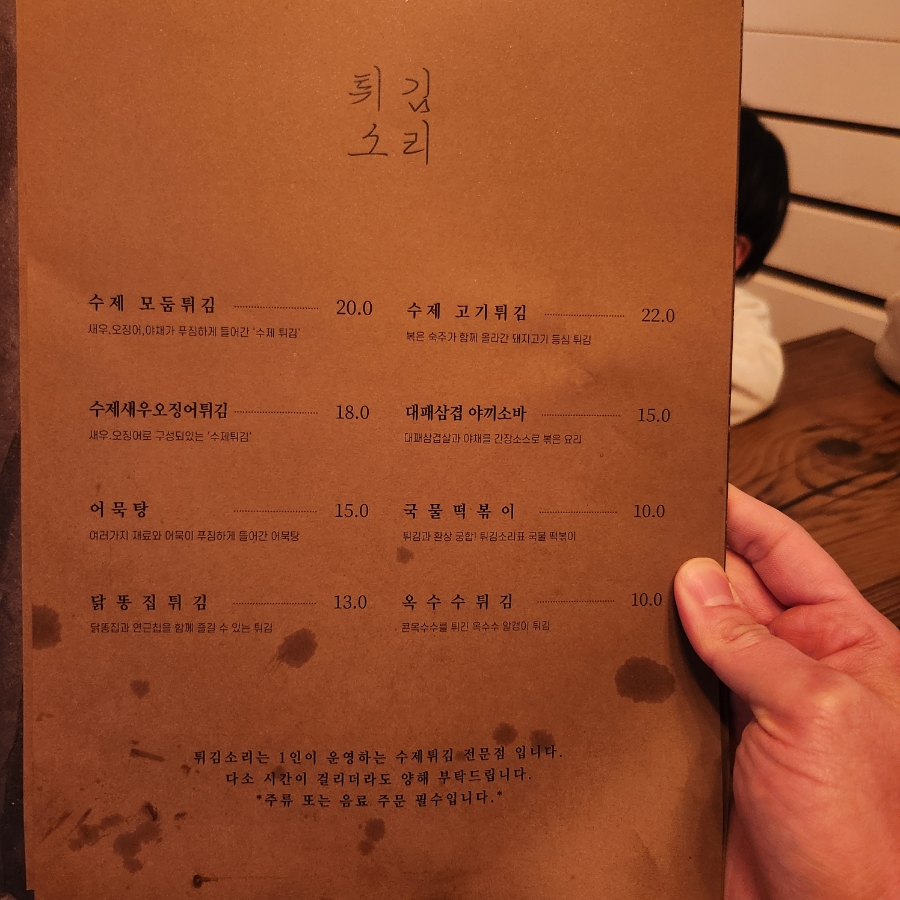 튀김
소리
수제 모둠튀김 20.0
새우,오징어,야채가 푸짐하게 들어간 '수제 튀김'
수제 고기튀김 22.0
볶은 숙주가 함께 올라간 돼지고기 등심 튀김
수제새우오징어튀김 18.0
새우,오징어로 구성되있는 '수제튀김'
대패삼겹 야끼소바 15.0
대패삼겹살과 야채를 간장소스로 볶은 요리
어묵탕 15.0
여러가지 재료와 어묵이 푸짐하게 들어간 어묵탕
국물떡볶이 10.0
튀김과 환상 궁합! 튀김소리표 국물 떡볶이
닭똥집튀김 13.0
닭똥집과 연근칩을 함께 즐길 수 있는 튀김
옥수수튀김 10.0
콘옥수수를 튀긴 옥수수 알갱이 튀김
튀김소리는 1인이 운영하는 수제튀김 전문점 입니다.
다소 시간이 걸리더라도 양해 부탁드립니다.
*주류 또는 음료 주문 필수입니다.*